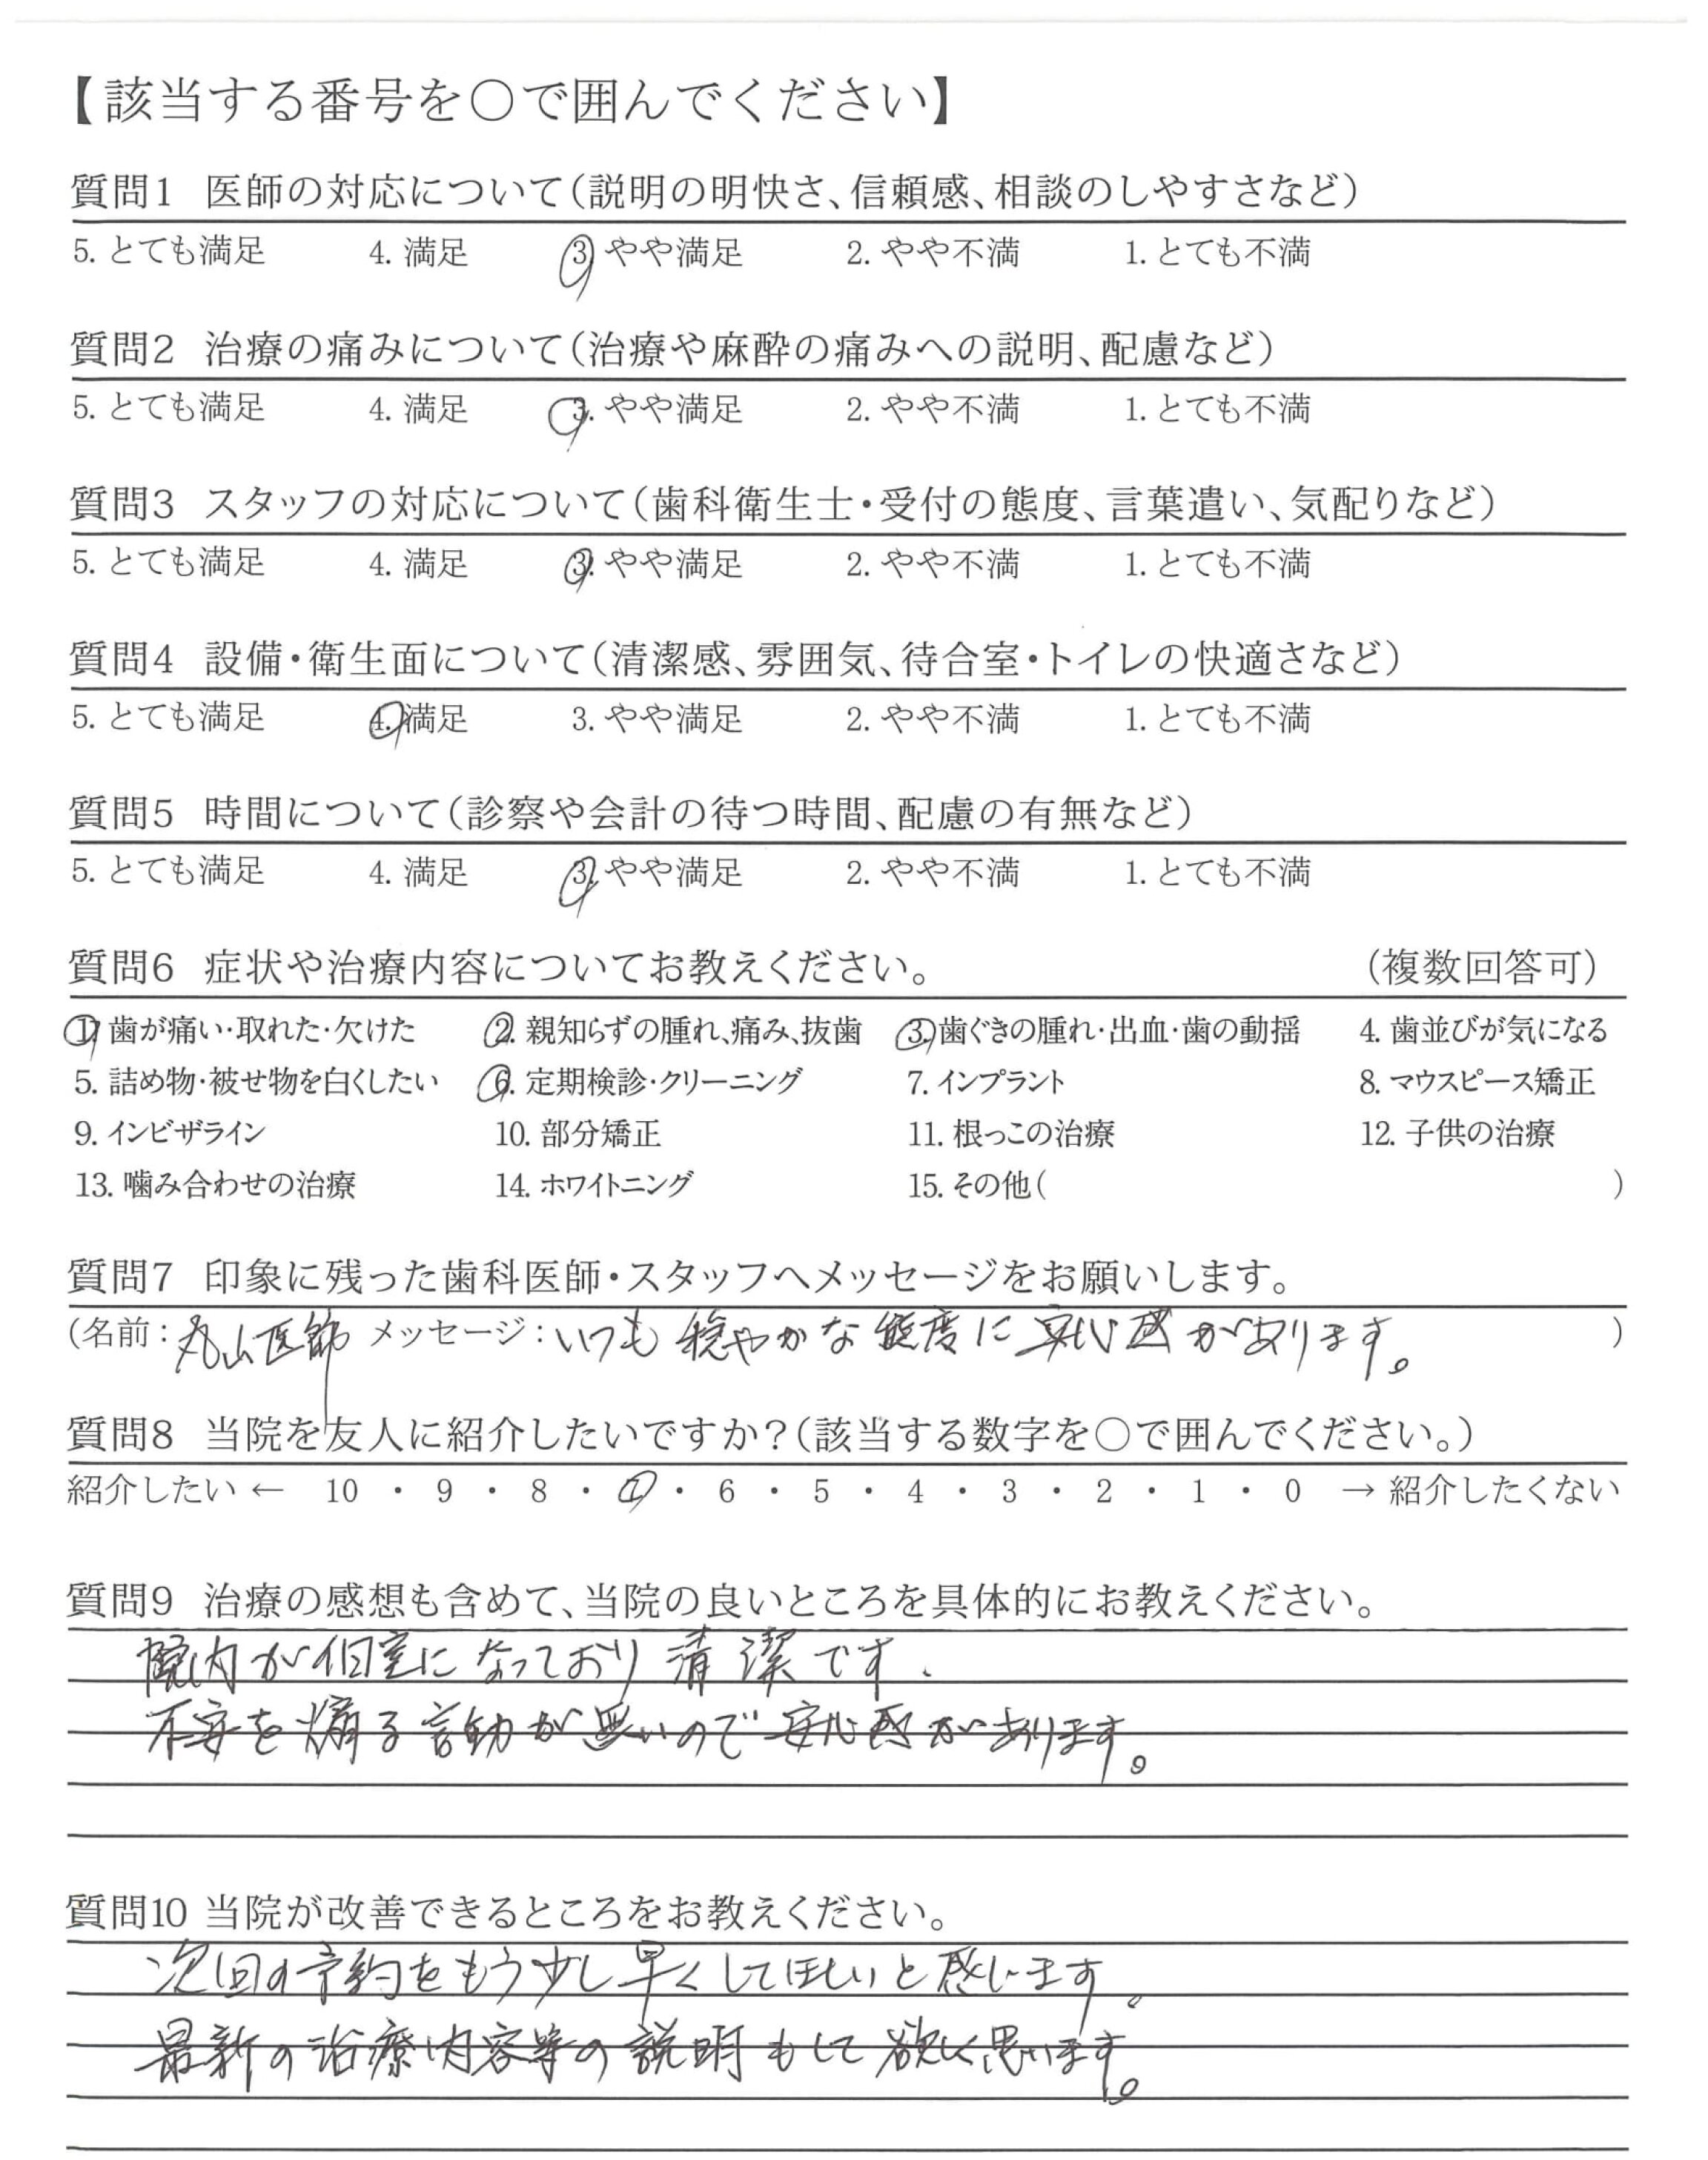 【該当する番号を○で囲んでください】
質問1 医師の対応について（説明の明快さ、信頼感、相談のしやすさなど）
5. とても満足 4. 満足 3. やや満足 2. やや不満 1. とても不満
質問2 治療の痛みについて（治療や麻酔の痛みへの説明、配慮など）
5. とても満足 4. 満足 3. やや満足 2. やや不満 1. とても不満
質問3 スタッフの対応について（歯科衛生士・受付の態度、言葉遣い、気配りなど）
5. とても満足 4. 満足 3. やや満足 2. やや不満 1. とても不満
質問4 設備・衛生面について（清潔感、雰囲気、待合室・トイレの快適さなど）
5. とても満足 4. 満足 3. やや満足 2. やや不満 1. とても不満
質問5 時間について（診察や会計の待つ時間、配慮の有無など）
5. とても満足 4. 満足 3. やや満足 2. やや不満 1. とても不満
質問6 症状や治療内容についてお教えください。 （複数回答可）
1. 歯が痛い・取れた・欠けた 2. 親知らずの腫れ、痛み、抜歯 3. 歯ぐきの腫れ・出血・歯の動揺 4. 歯並びが気になる
5. 詰め物・被せ物を白くしたい 6. 定期検診・クリーニング 7. インプラント 8. マウスピース矯正
9. インビザライン 10. 部分矯正 11. 根っこの治療 12. 子供の治療
13. 噛み合わせの治療 14. ホワイトニング 15. その他（ ）
質問7 印象に残った歯科医師・スタッフへメッセージをお願いします。
（名前：丸山医師 メッセージ：いつも穏やかな態度に安心感があります。 ）
質問8 当院を友人に紹介したいですか？（該当する数字を○で囲んでください。）
紹介したい ← 10 ・ 9 ・ 8 ・ 7 ・ 6 ・ 5 ・ 4 ・ 3 ・ 2 ・ 1 ・ 0 → 紹介したくない
質問9 治療の感想も含めて、当院の良いところを具体的にお教えください。
院内が個室になっており清潔です、
不安を煽る言動が無いので安心感があります。
質問10 当院が改善できるところをお教えください。
次回の予約をもう少し早くしてほしいと感じます。
最新の治療内容等の説明もして欲しく思います。